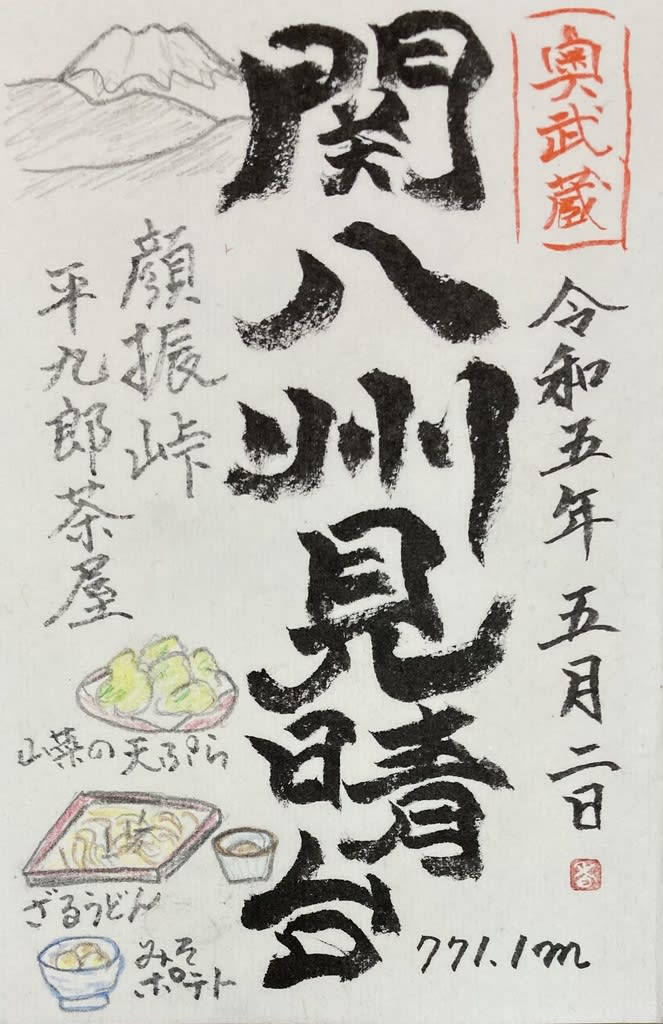 奥武蔵
令和五年 五月二日
関八州見晴台
771.1m
顔振峠
平九郎茶屋
山菜の天ぷら
ざるうどん
みそ
ポテト